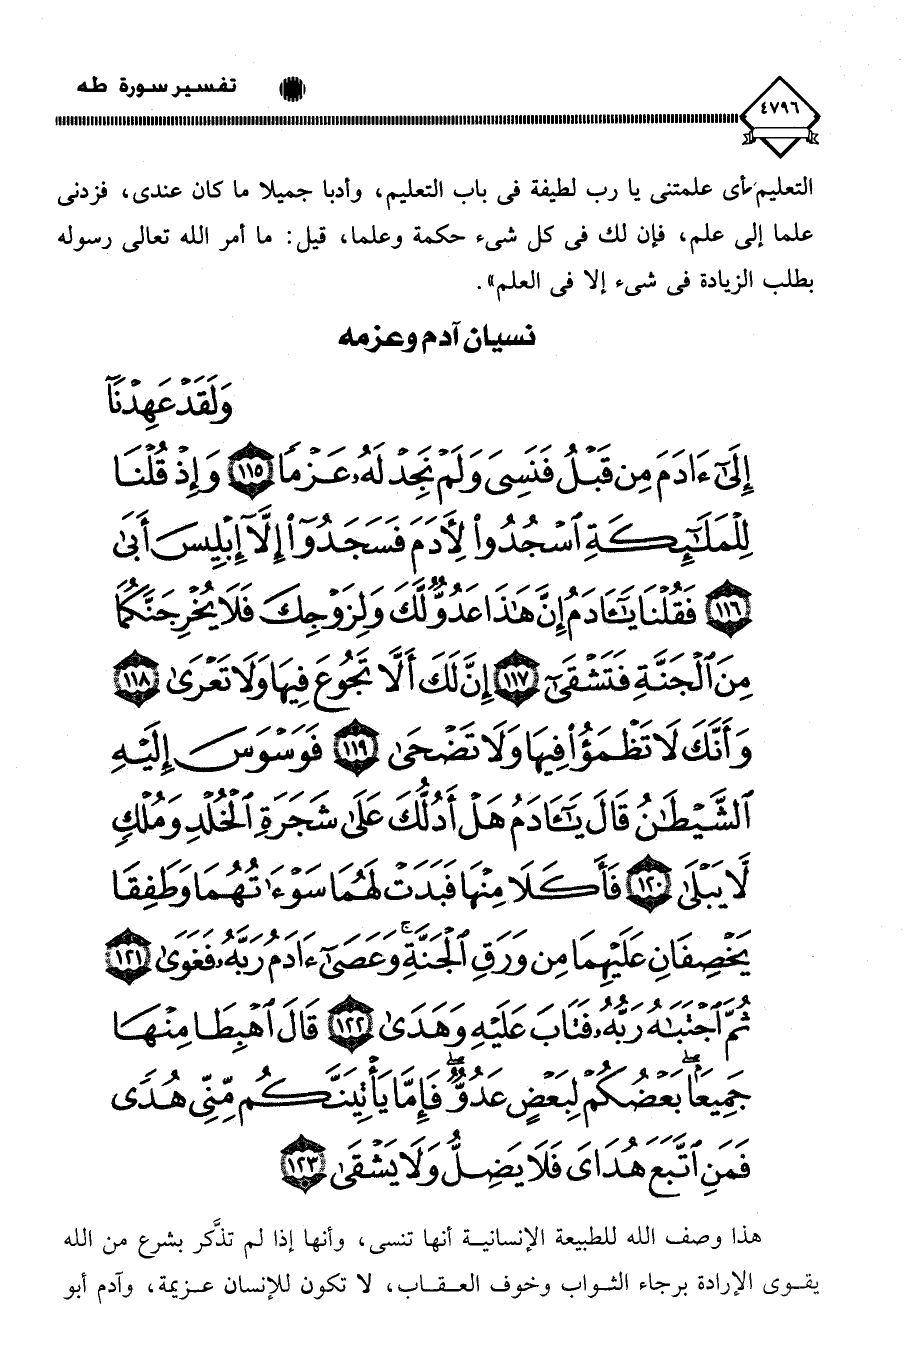 تفسير سورة طه
٤٧٩٦
التعليم أى علمتنى يا رب لطيفة فى باب التعليم، وأدبا جميلا ما كان عندى، فزدنى
علما إلى علم، فإن لك فى كل شىء حكمة وعلما، قيل: ما أمر الله تعالى رسوله
بطلب الزيادة فى شىء إلا فى العلم».
نسيان آدم وعزمه
وَلَقَدْ عَهِدْنَآ
إِلَىٰٓ ءَادَمَ مِن قَبْلُ فَنَسِىَ وَلَمْ نَجِدْ لَهُۥ عَزْمًا ١١٥ وَإِذْ قُلْنَا
لِلْمَلَٰٓئِكَةِ ٱسْجُدُوا۟ لِأَدَمَ فَسَجَدُوٓا۟ إِلَّآ إِبْلِيسَ أَبَىٰ
١١٦ فَقُلْنَا يَٰٓـَٔادَمُ إِنَّ هَٰذَا عَدُوٌّ لَّكَ وَلِزَوْجِكَ فَلَا يُخْرِجَنَّكُمَا
مِنَ ٱلْجَنَّةِ فَتَشْقَىٰٓ ١١٧ إِنَّ لَكَ أَلَّا تَجُوعَ فِيهَا وَلَا تَعْرَىٰ ١١٨
وَأَنَّكَ لَا تَظْمَؤُا۟ فِيهَا وَلَا تَضْحَىٰ ١١٩ فَوَسْوَسَ إِلَيْهِ
ٱلشَّيْطَٰنُ قَالَ يَٰٓـَٔادَمُ هَلْ أَدُلُّكَ عَلَىٰ شَجَرَةِ ٱلْخُلْدِ وَمُلْكٍ
لَّا يَبْلَىٰ ١٢٠ فَأَكَلَا مِنْهَا فَبَدَتْ لَهُمَا سَوْءَٰتُهُمَا وَطَفِقَا
يَخْصِفَانِ عَلَيْهِمَا مِن وَرَقِ ٱلْجَنَّةِ ۚ وَعَصَىٰٓ ءَادَمُ رَبَّهُۥ فَغَوَىٰ ١٢١
ثُمَّ ٱجْتَبَٰهُ رَبُّهُۥ فَتَابَ عَلَيْهِ وَهَدَىٰ ١٢٢ قَالَ ٱهْبِطَا مِنْهَا
جَمِيعًۢا ۖ بَعْضُكُمْ لِبَعْضٍ عَدُوٌّ ۖ فَإِمَّا يَأْتِيَنَّكُم مِّنِّى هُدًى
فَمَنِ ٱتَّبَعَ هُدَاىَ فَلَا يَضِلُّ وَلَا يَشْقَىٰ ١٢٣
هذا وصف الله للطبيعة الإنسانية أنها تنسى، وأنها إذا لم تذكَّر بشرع من الله
يقوى الإرادة برجاء الثواب وخوف العقاب، لا تكون للإنسان عزيمة، وآدم أبو